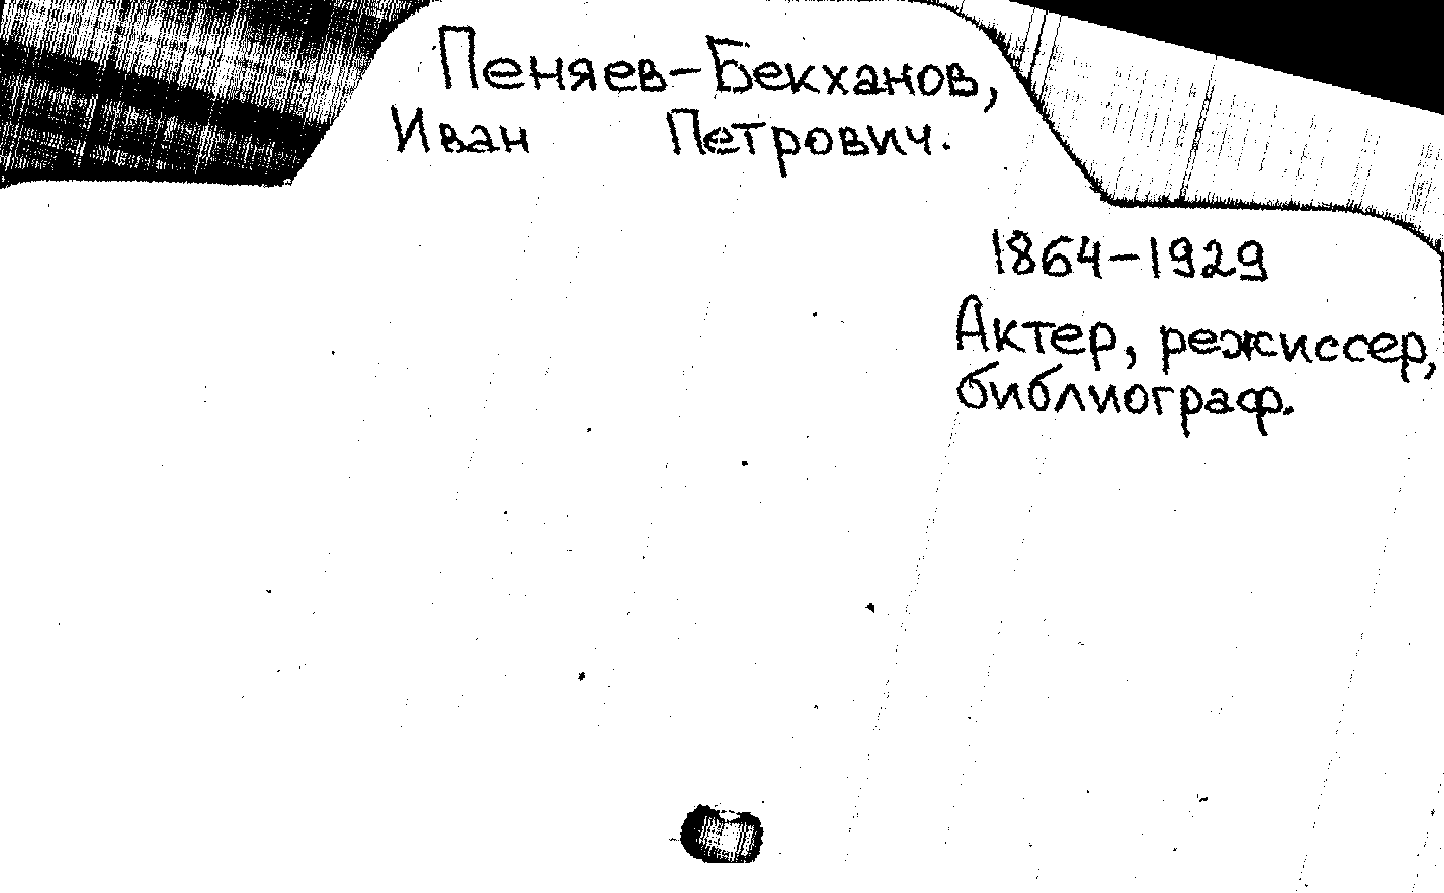 Пеняев-Бекханов,
Иван Петрович.
1864-1929
Актер, режиссер,
библиограф.